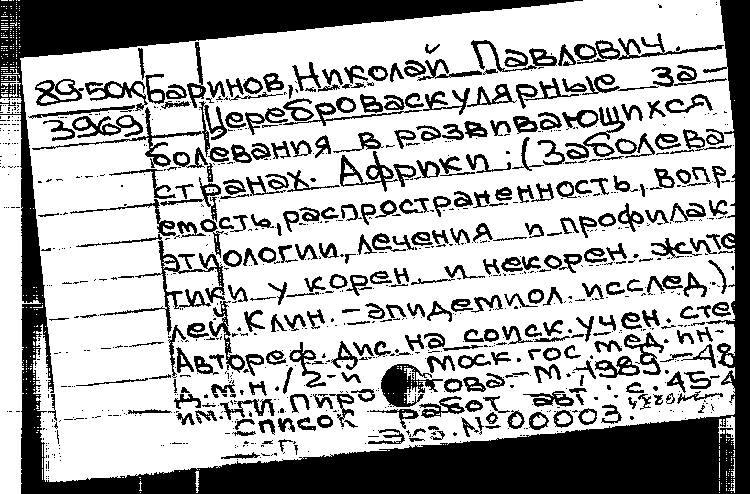 89-50К Баринов, Николай Павлович.
3969 Цереброваскулярные за-
болевания в развивающихся
странах. Африки ; (Заболева
емость, распространенность, вопр.
этиологии, лечения и профилак-
тики у корен. и некорен. жите
лей. Клин.-эпидемиол. исслед.):
Автореф. дис. на соиск. учен. сте
д.м.н. / 2-й Моск. гос. мед. ин-
им. Н.И. Пиро това.- М., 1989. - 48
Список работ авт.: с. 45-4
Экз. № 00003.